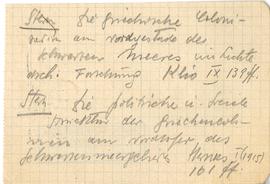 Stern Die griechische Coloni-
sation am Nordgestade des
Schwarzen Meeres im Lichte
arch. Forschung Klio IX 139 ff.
Stern Die politische u. soziale
Struktur der Griechencolo-
nien am Nordufer des
Schwarzmeergebietes Hermes (1915)
161 ff.